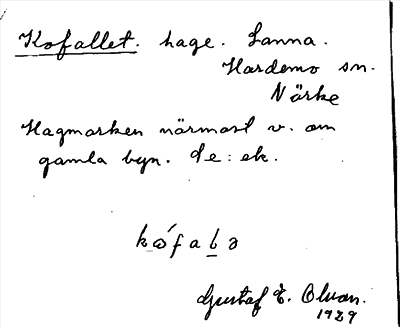 Kofallet. hage. Lanna.
Hardemo sn.
Närke
Hagmarken närmast v. om
gamla byn. De: ek.
Gustaf E. Olson.
1929